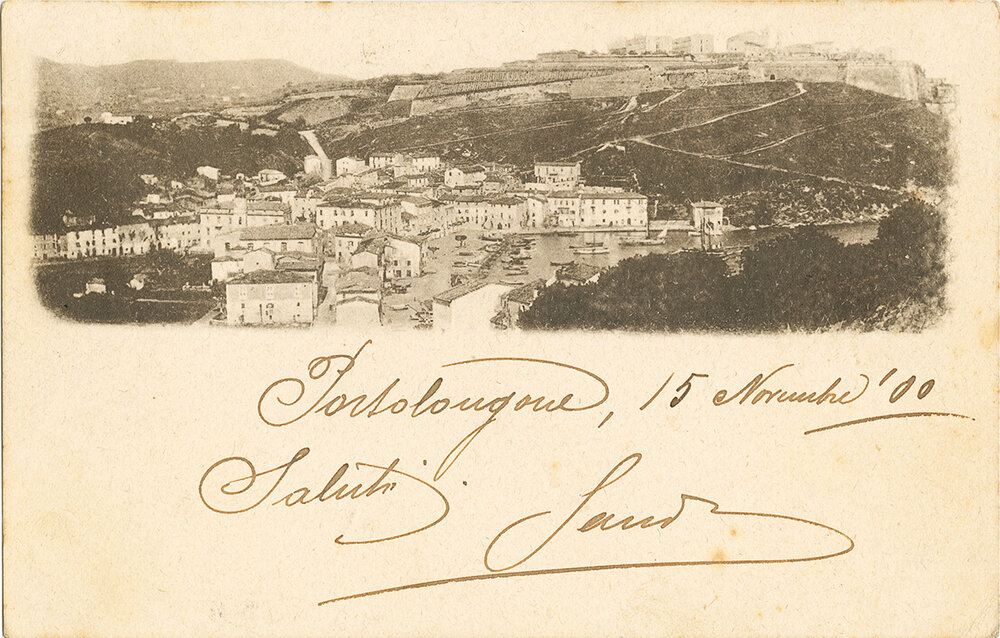 Portolongone, 15 Novembre '00
Saluti